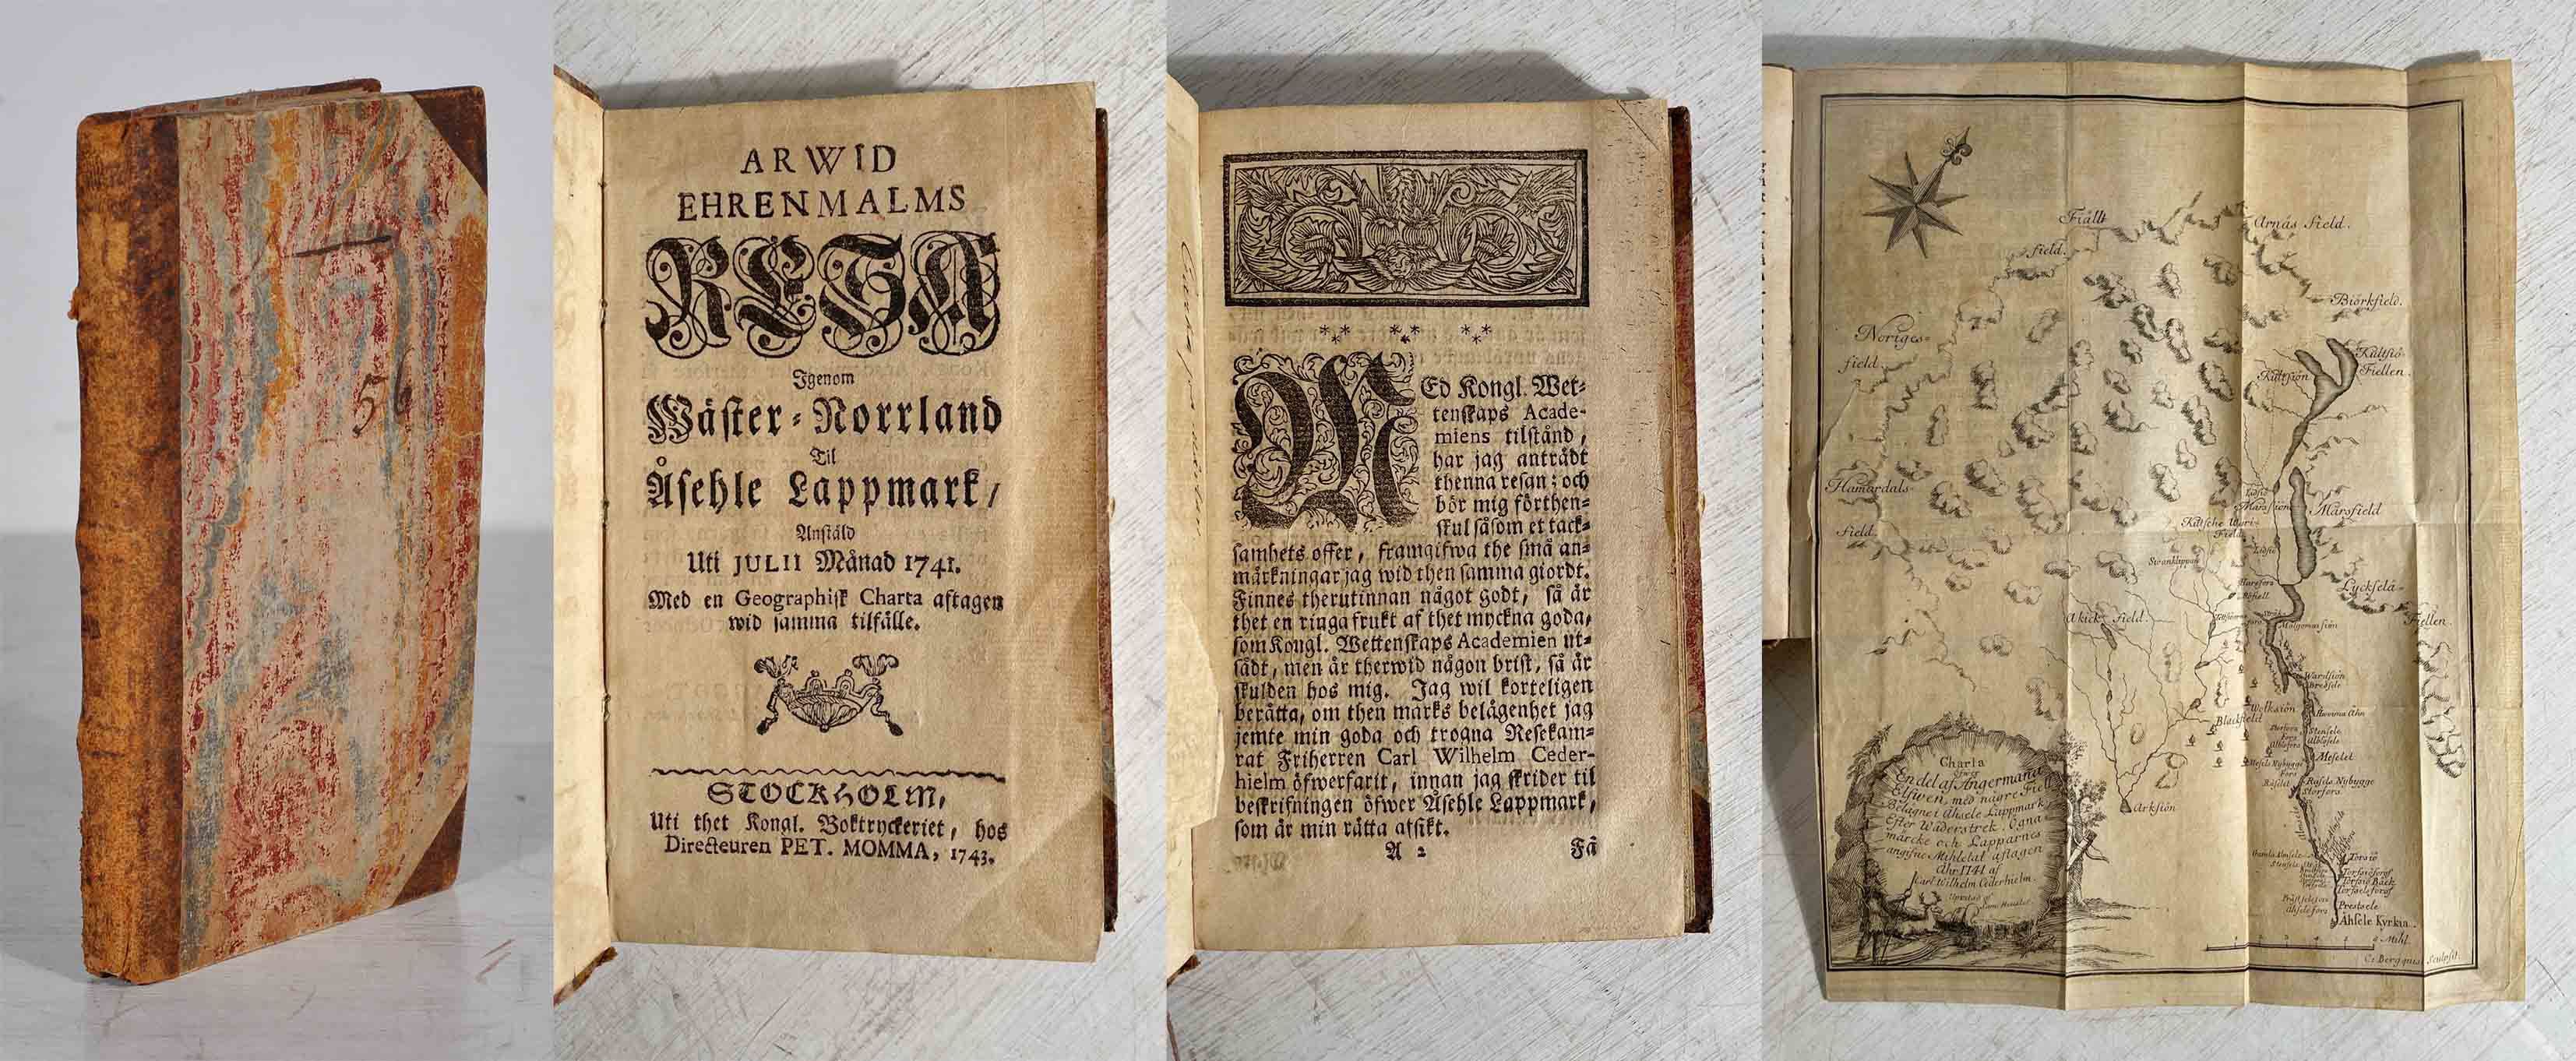 56
ARWID
EHRENMALMS
RESA
Igenom
Wäster-Norrland
Til
Åsehle Lappmark/
Anstäld
Uti JULII Månad 1741.
Med en Geographisk Charta aftagen
wid samma tilfälle.
STOCKHOLM,
Uti thet Kongl. Boktryckeriet, hos
Directeuren PET. MOMMA, 1743.
MEd Kongl. Wet-
tenskaps Acade-
miens tilstånd,
har jag anträdt
thenna resan; och
bör mig förthen-
skul såsom et tack-
samhets offer, framgifwa the små an-
märkningar jag wid then samma giordt.
Finnes therutinnan något godt, så är
thet en ringa frukt af thet myckna goda,
som Kongl. Wettenskaps Academien ut-
sådt, men är therwid någon brist, så är
skulden hos mig. Jag wil korteligen
berätta, om then marks belägenhet jag
jemte min goda och trogna Resekam-
rat Friherren Carl Wilhelm Ceder-
hielm öfwerfarit, innan jag skrider til
beskrifningen öfwer Åsehle Lappmark,
som är min rätta afsikt.
A 2
Få
Fiällt
Arnäs field.
field.
Biörkfield.
Noriges
field.
Kultsiö
Fiellen.
Kultsiön
Hamardals
field.
Marsfield
Marssiön
Kultsche Wari
Field
Swanklippan
Lycksela
Fiellen.
Akiek field.
Malgomai siön
Wardsiön
Bredsele
Wolksiön
Blackfield
Meselet
Råsele Nybygge
Storfors
Arksiön
Torsiö
Torsiö Bäck
Prestsele
Åhsele Kyrkia
Mihl.
Charta
öfwer
En del af Ångermanna
Elfwen, med någre Fiell
Belägne i Åhsele Lappmark
Efter Wäderstrek, Ögna
märcke och Lapparnes
angifne Mihletal aftagen
Åhr 1741 af
Carl Wilhelm Cederhielm.
C. Bergquist Sculpsit.